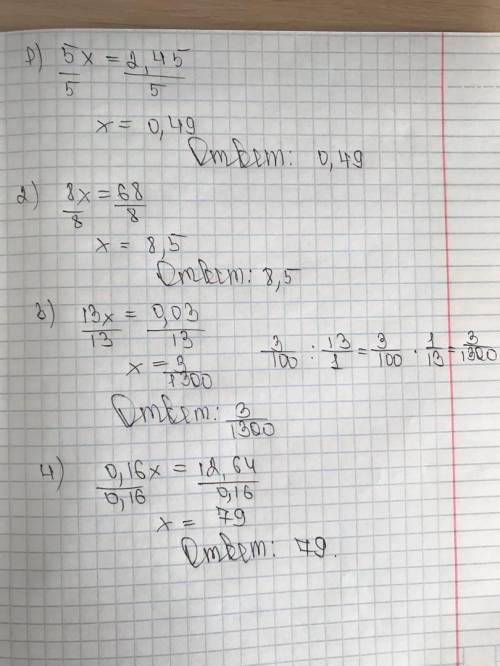 1) 5x/5 = 2,45/5
x = 0,49
Ответ: 0,49
2) 8x/8 = 68/8
x = 8,5
Ответ: 8,5
3) 13x/13 = 0,03/13
x = 3/1300
3/100 : 13/1 = 3/100 · 1/13 = 3/1300
Ответ: 3/1300
4) 0,16x/0,16 = 12,64/0,16
x = 79
Ответ: 79.